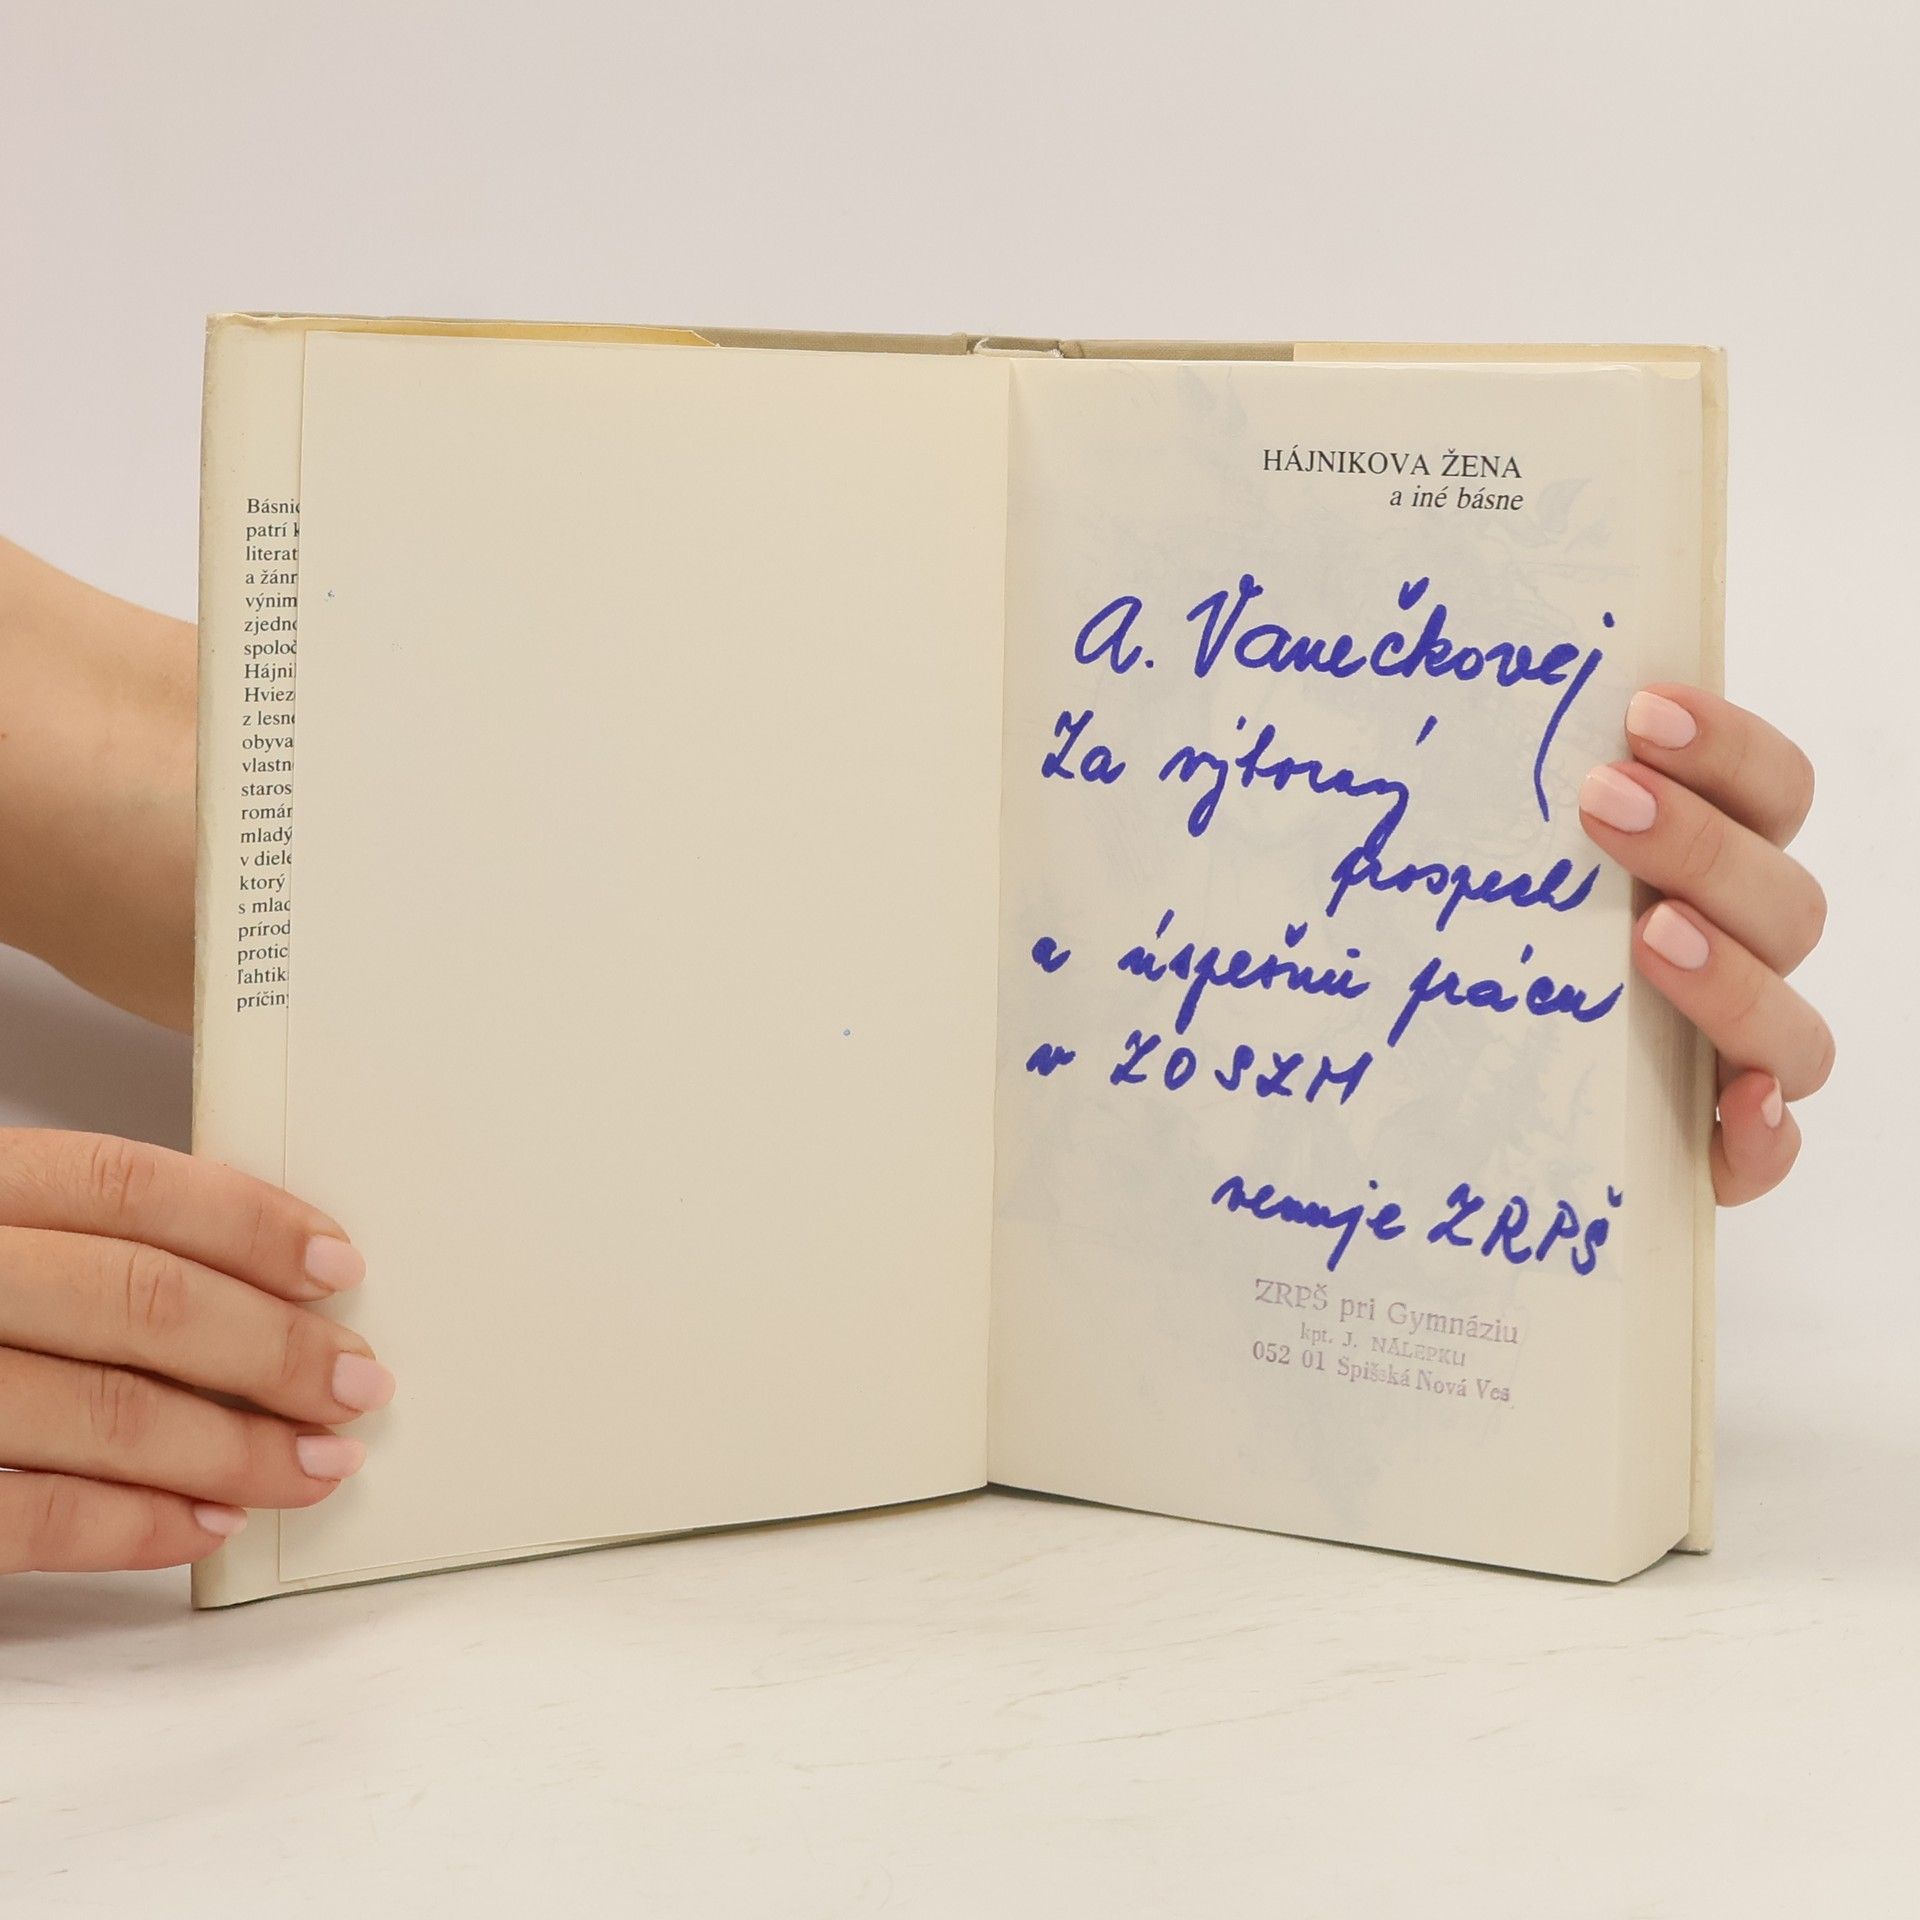 Básnic
patrí k
literat
a žánr
výnim
zjedno
spoloč
Hájnik
Hviez
z lesne
obyva
vlastn
staros
román
mladý
v diele
ktorý
s mlad
prírod
protic
ľahtik
príčiny
HÁJNIKOVA ŽENA
a iné básne
A. Vanečkovej
Za výborný
prospech
a úspešnú prácu
v ZO SZM
venuje ZRPŠ
ZRPŠ pri Gymnáziu
kpt. J. NÁLEPKU
052 01 Spišská Nová Ves